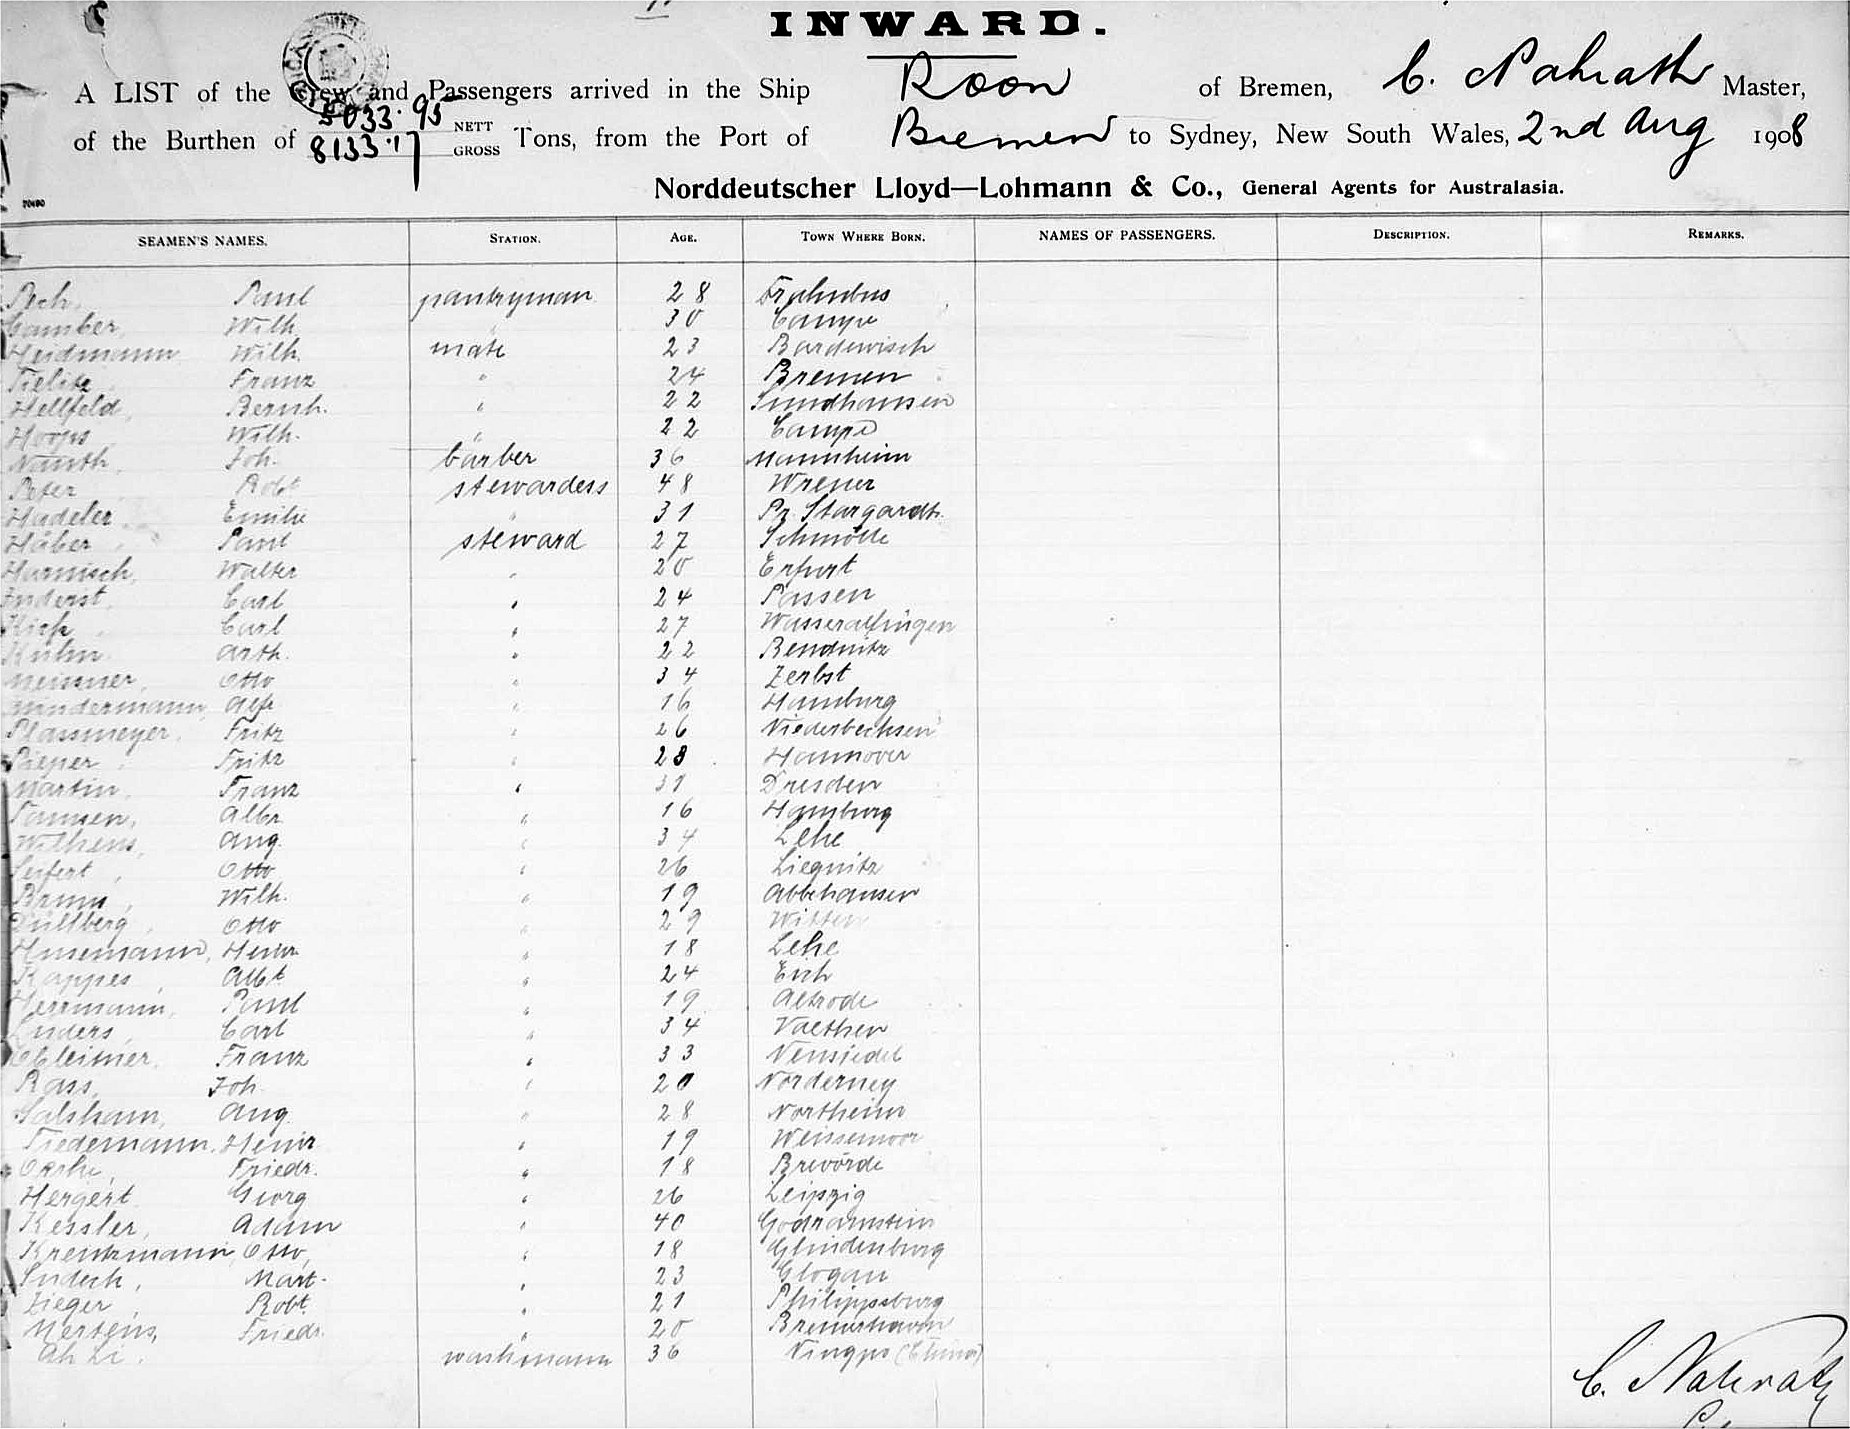 INWARD.
A LIST of the Crew and Passengers arrived in the Ship Roon of Bremen, C. Nahrath Master,
of the Burthen of 5033.95 NETT 8133.17 GROSS Tons, from the Port of Bremen to Sydney, New South Wales, 2nd Aug 1908
Norddeutscher Lloyd—Lohmann & Co., General Agents for Australasia.
70490
SEAMEN'S NAMES. STATION. AGE. TOWN WHERE BORN. NAMES OF PASSENGERS. DESCRIPTION. REMARKS.
Pech, Paul pantryman 28
Camber, Wilh. " 30 Campe
Heidmann Wilh. mate 23 Bardewisch
Tielitz, Franz " 24 Bremen
Hellfeld, Bernh. " 22 Sundhausen
Hoops Wilh. " 22 Campe
Nauth, Joh. barber 36 Mannheim
Peter Robt stewardess 48
Hadeler Emilie " 31 Pr. Stargardt
Häber, Paul steward 27 Schmölle
Harnisch, Walter " 20 Erfurt
Inderst, Carl " 24 Passen
Carl " 27 Wasseralfingen
Kuhn Arth. " 22
Meissner, Otto " 34 Zerbst
Mindermann, Alf. " 16 Hamburg
Plassmeyer, Fritz " 26 Niederbechsen
Pieper, Fritz " 28 Hannover
Martin, Franz " 31 Dresden
Paulsen, Albr. " 16 Hamburg
Wilkens, Aug. " 34 Lehe
Seifert, Otto " 26 Liegnitz
Bruns, Wilh. " 19 Abbehausen
Düllberg, Otto " 29 Witten
Husemann, Heinr. " 18 Lehe
Kappes, Albt " 24 Eich
Herrmann, Paul " 19 Altrode
Enders, Carl " 34 Vaethen
Franz " 33 Neusiedel
Rass, Joh. " 20 Norderney
Aug. " 28 Northeim
Tiedemann, Heinr " 19 Weissemoor
Friedr. " 18 Brevörde
Hergert Georg " 26 Leipzig
Kessler, Adam " 40 Godramstein
Kreutzmann, Otto, " 18 Glindenburg
Mart. " 23 Glogau
Zieger, Robt. " 21 Philippsburg
Mertens, Friedr. " 20 Bremerhaven
Ah Li. washmann 36 Ningpo (China)
C. Nahrath